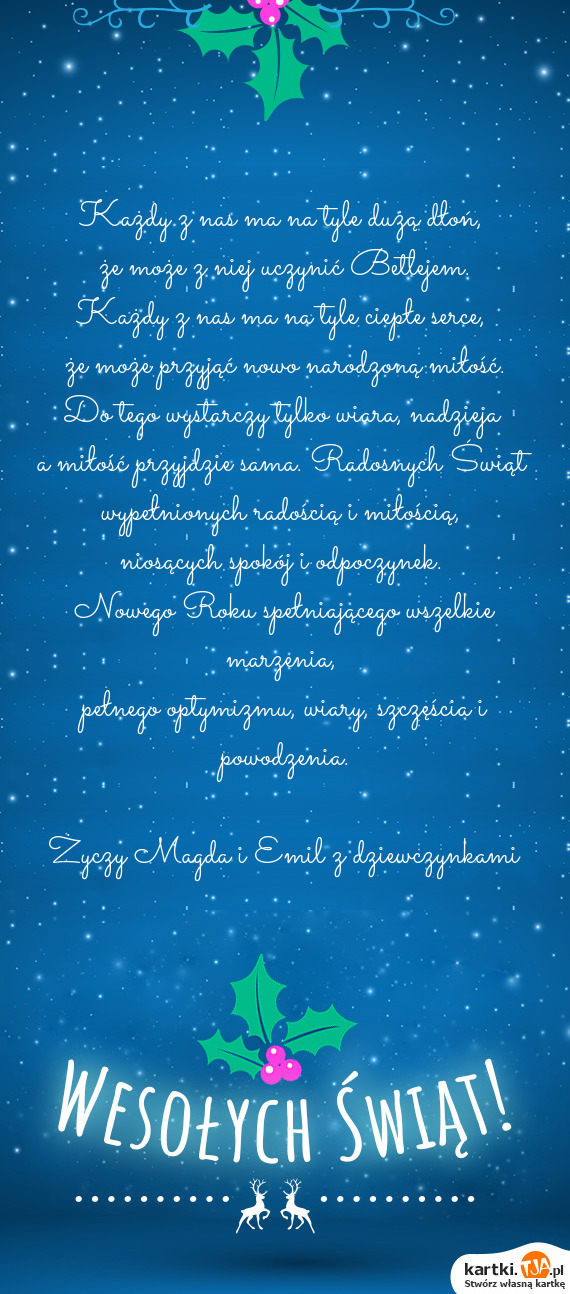 Każdy z nas ma na tyle dużą dłoń,
że może z niej uczynić Betlejem.
Każdy z nas ma na tyle ciepłe serce,
że może przyjąć nowo narodzoną miłość.
Do tego wystarczy tylko wiara, nadzieja
a miłość przyjdzie sama. Radosnych Świąt
wypełnionych radością i miłością,
niosących spokój i odpoczynek.
Nowego Roku spełniającego wszelkie
marzenia,
pełnego optymizmu, wiary, szczęścia i
powodzenia.
Życzy Magda i Emil z dziewczynkami
Wesołych Świąt!
kartki.TJA.pl
Stwórz własną kartkę